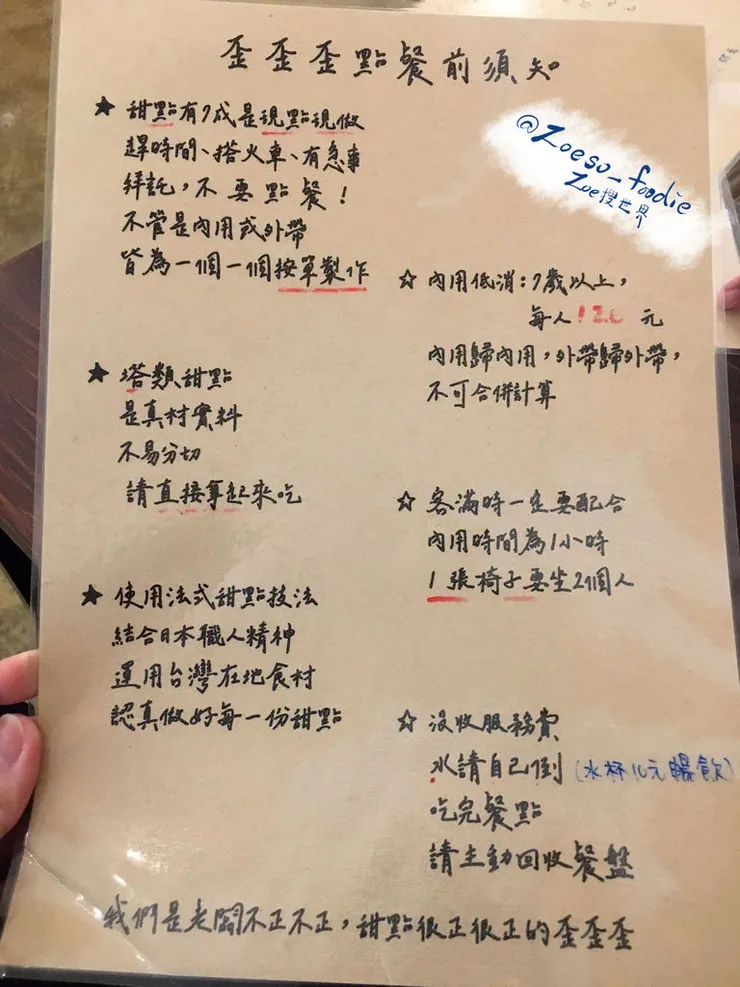 歪歪歪點餐前須知
★ 甜點有7成是現點現做
趕時間、搭火車、有急事
拜託，不要點餐！
不管是內用或外帶
皆為一個一個按單製作
★ 塔類甜點
是真材實料
不易分切
請直接拿起來吃
★ 使用法式甜點技法
結合日本職人精神
運用台灣在地食材
認真做好每一份甜點
@Zoeso_foodie
Zoe搜世界
☆ 內用低消：7歲以上，
每人120元
內用歸內用，外帶歸外帶，
不可合併計算
☆ 客滿時一定要配合
內用時間為1小時
1張椅子要坐2個人
☆ 沒收服務費
水請自己倒（水杯10元暢飲）
吃完餐點
請主動回收餐盤
我們是老闆不正不正，甜點很正很正的歪歪歪